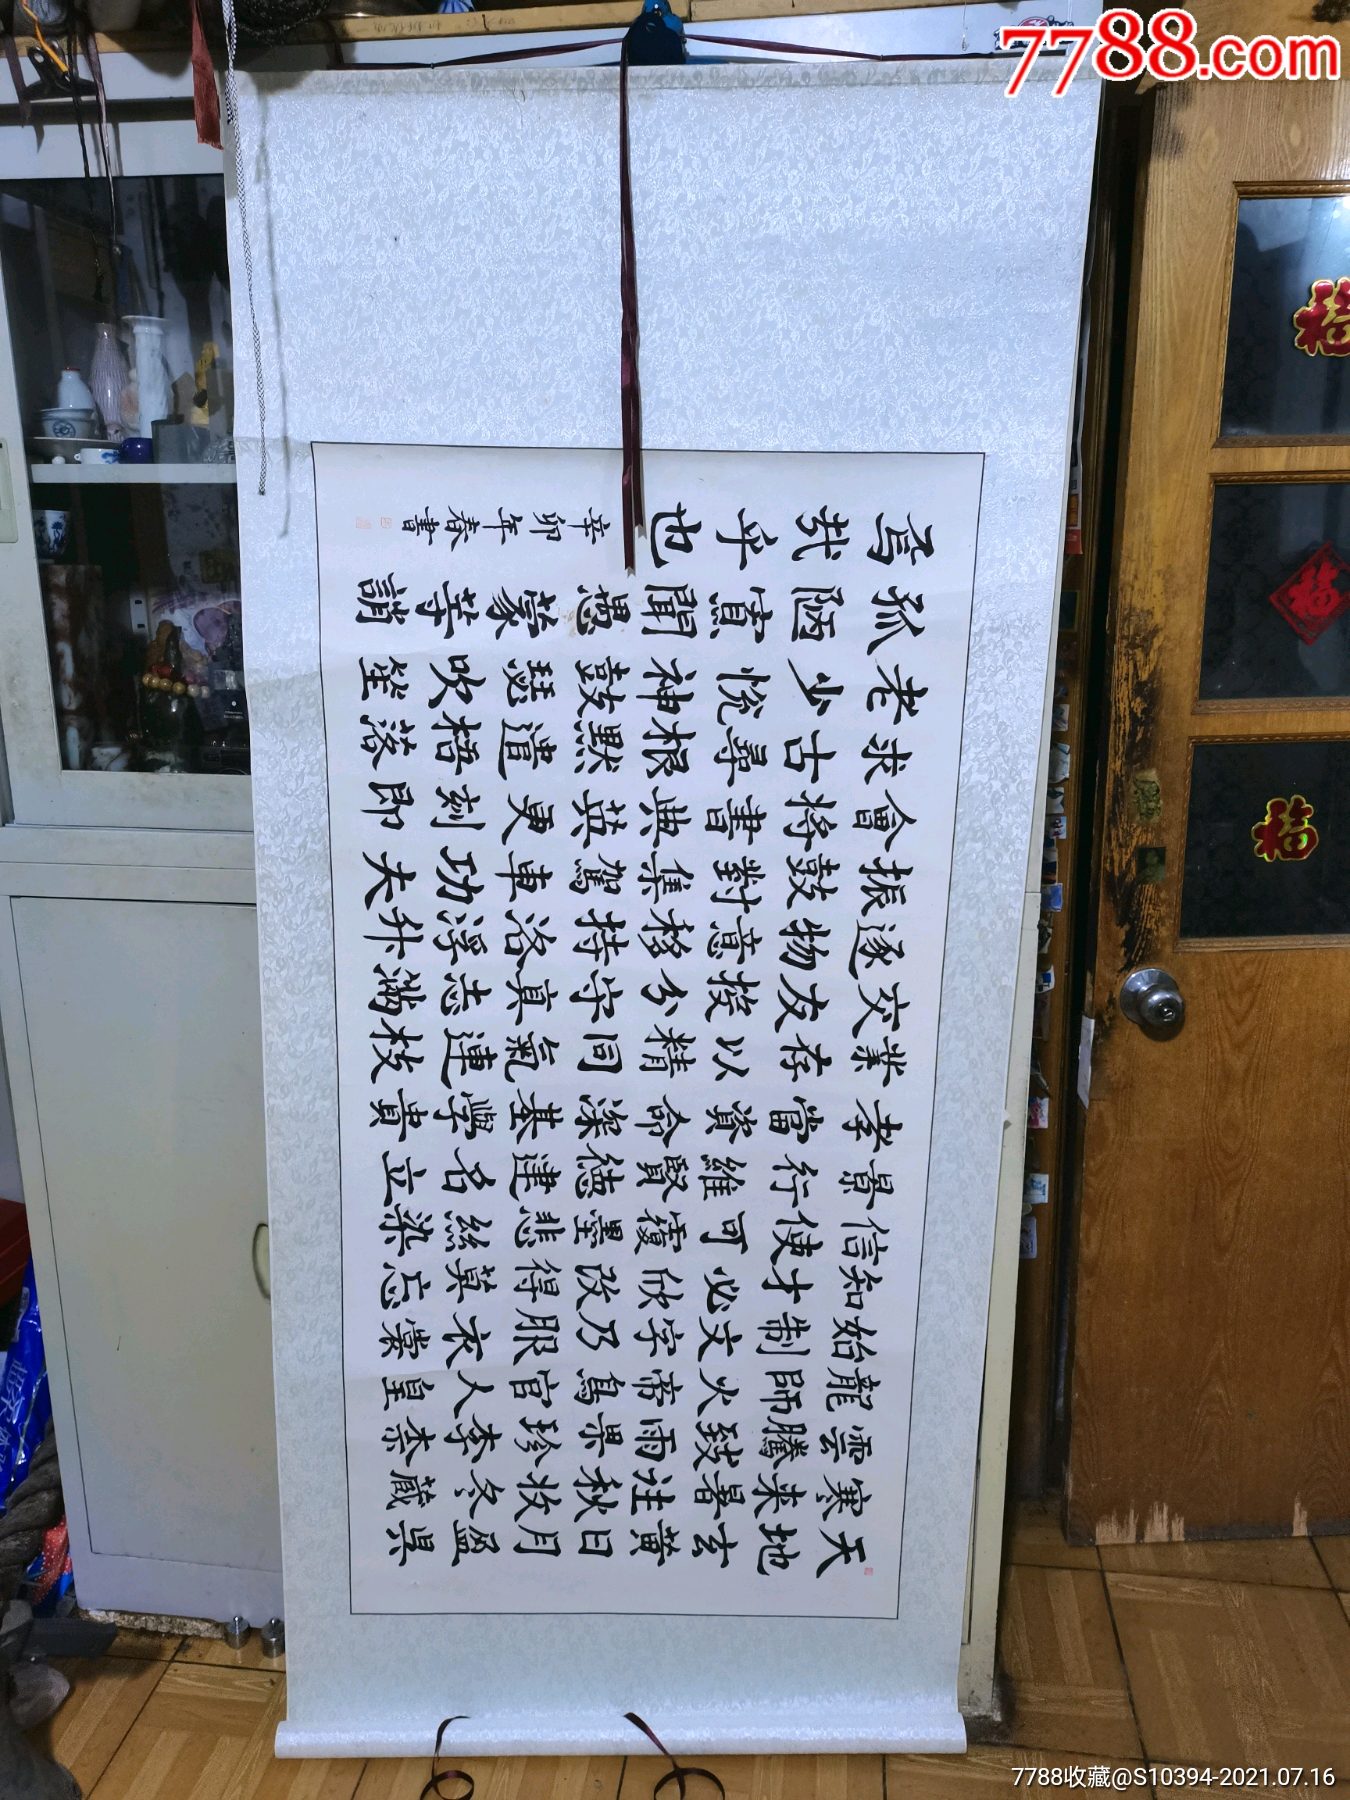 天地玄黃日月盈昃
寒来暑往秋收冬藏
雲騰致雨果珍李柰
龍師火帝鳥官人皇
始制文字乃服衣裳
知才必欣改得莫忘
信使可覆墨悲絲染
景行維賢德建名立
孝當資命深基學貴
業存以精同氣連枝
交友投分守真志滿
逐物意移持洛浮升
振鼓對集駕車功大
會將書典英更刻即
求古尋根默遣梧落
老少悅神鼓瑟吹笙
孤陋寡聞愚蒙等誚
焉哉乎也
辛卯年春書
7788.com
福
福
福
7788收藏@S10394-2021.07.16